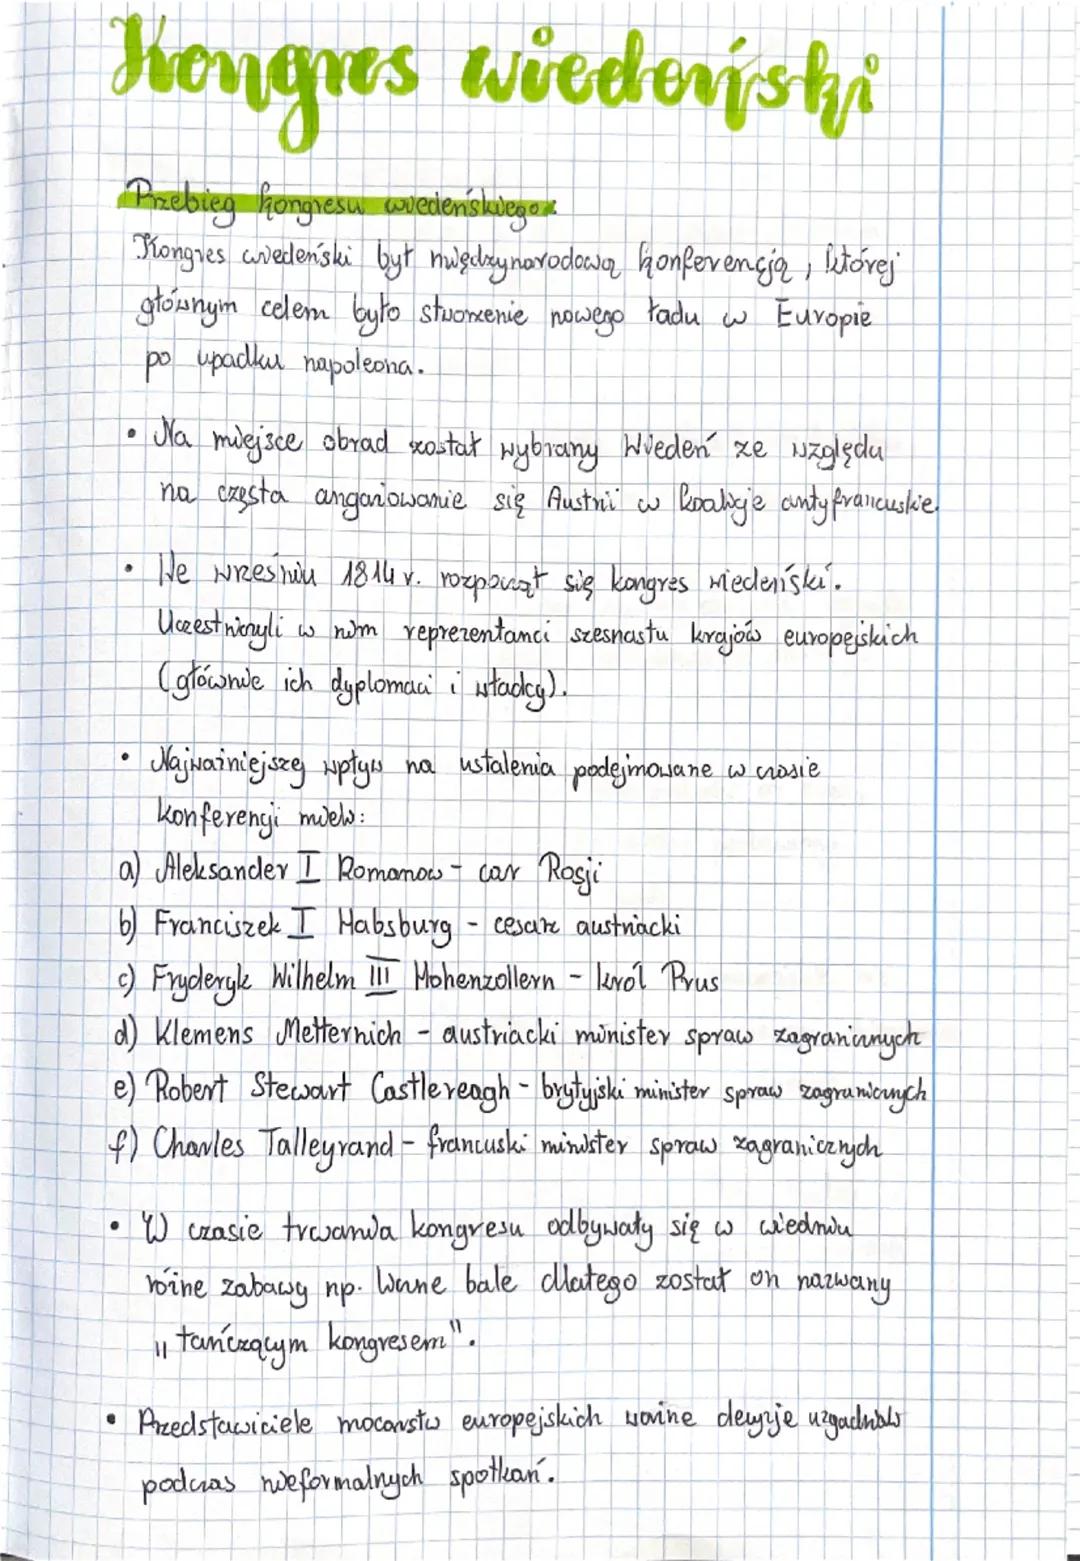 Kongres wiedeński
Przebieg kongresu wiedeńskiego:
Kongres wiedeński był międzynarodową konferencją, której
głównym celem było stworzenie nowego ładu w Europie
po upadku napoleona.
• Na miejsce obrad został wybrany Wiedeń ze względu
na częsta angariowanie się Austrii w koalicje antyfrancuskie.
• We wrześniu 1814 r. rozpoczął się kongres wiedeński.
Uczestniczyli w nim reprezentanci szesnastu krajów europejskich
(głównie ich dyplomaci i władcy).
• Najważniejszy wpływ na ustalenia podejmowane w czasie
konferencji mieli:
a) Aleksander I Romanow - car Rosji
b) Franciszek I Habsburg - cesarz austriacki
c) Fryderyk Wilhelm III Hohenzollern - król Prus
d) Klemens Metternich - austriacki minister spraw zagranicznych
e) Robert Stewart Castlereagh - brytyjski minister spraw zagranicznych
f) Charles Talleyrand - francuski minister spraw zagranicznych
• W czasie trwania kongresu odbywały się w wiedniu
różne zabawy np. liczne bale dlatego został on nazwany
"tańczącym kongresem".
• Przedstawiciele mocarstw europejskich ważne decyzje uzgadniali
podczas nieformalnych spotkań.